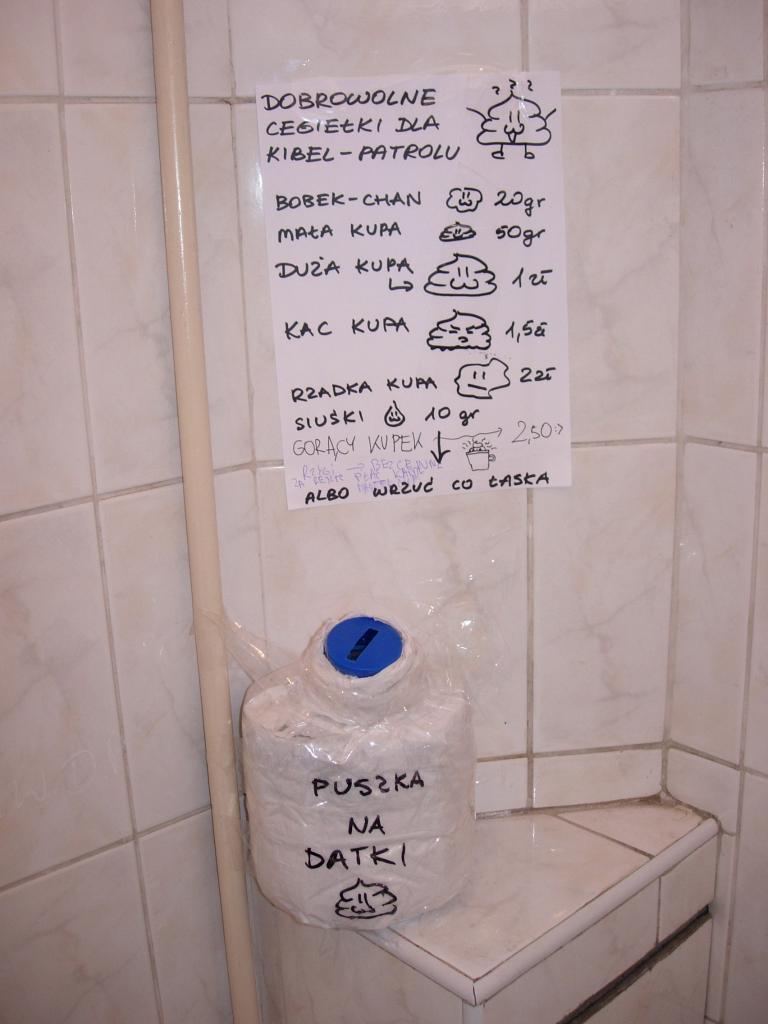 ? ? ?
DOBROWOLNE
CEGIEŁKI DLA
KIBEL-PATROLU
BOBEK-CHAN 20gr
MAŁA KUPA 50gr
DUŻA KUPA 1 zł
KAC KUPA 1,5zł
RZADKA KUPA 2zł
SIUŚKI 10 gr
GORĄCY KUPEK 2,50:>
RZYGI → BEZCENNE
ALBO WRZUĆ CO ŁASKA
PUSZKA
NA
DATKI